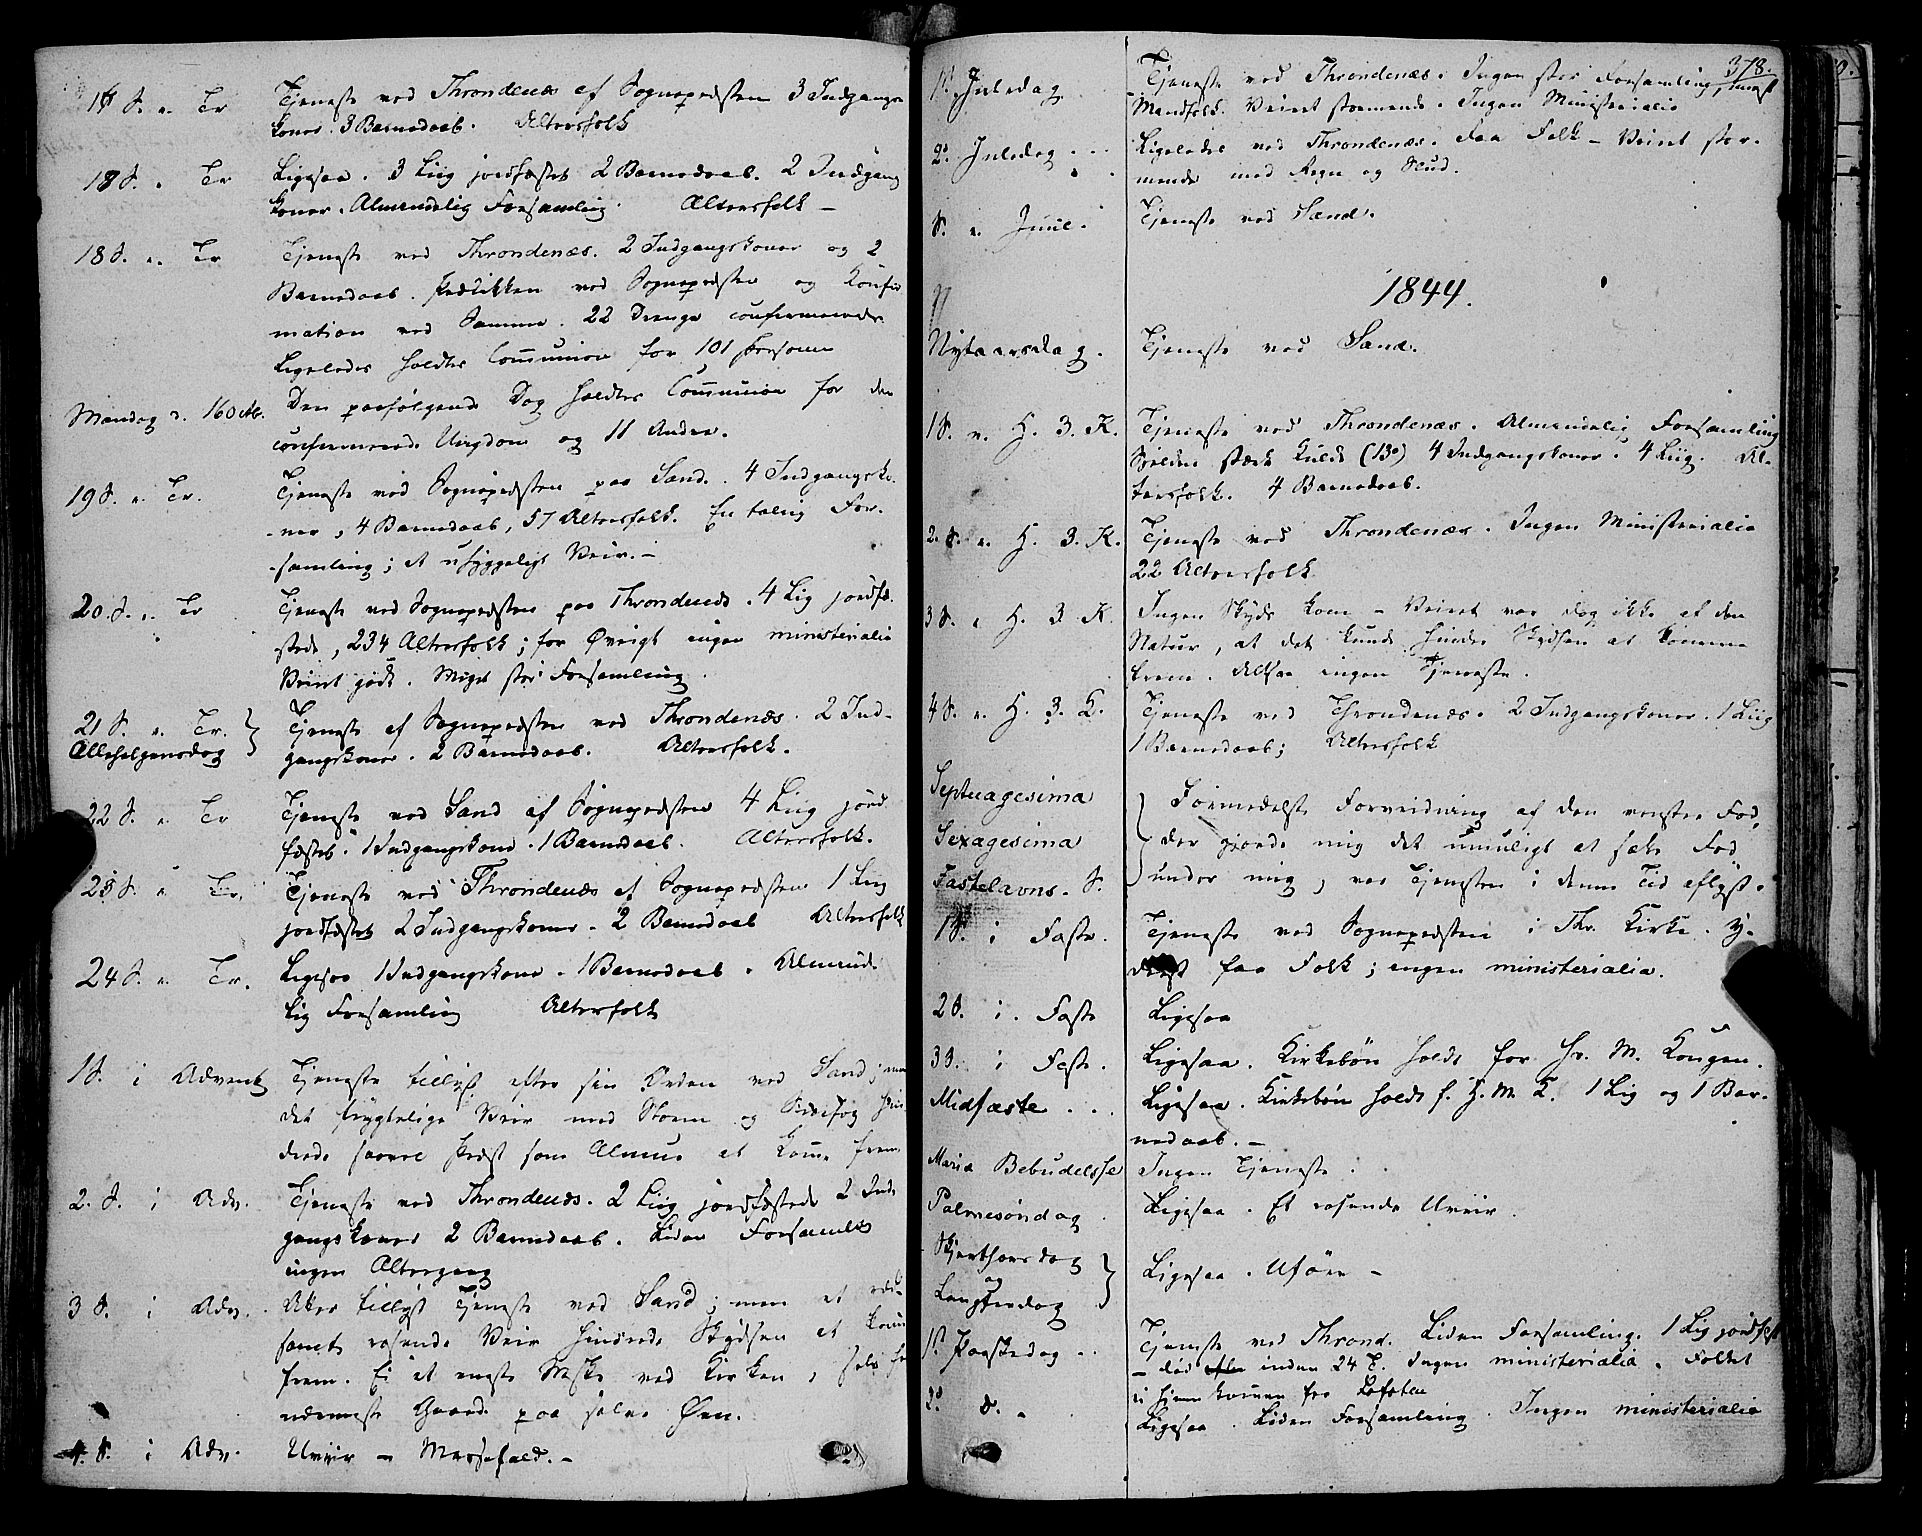 16 S. e. Tr Tjeneste ved Throndenæs af Sognepræsten 3 Indgangs-
koner. 3 Barnedaab. Altersfolk
18 S. e. Tr Ligesaa. 3 Liig jordfæstet 2 Barnedaab. 2 Indgang
koner. Almindelig Forsamling. Altersfolk –
18 S. e. Tr Tjeneste ved Throndenæs. 2 Indgangskoner og 2
Barnedaab. Prædikken ved Sognepræsten og Konfir
mation ved Samme. 22 Drenge confirmerede.
Ligeledes holdtes Communion for 101 Personer
Mandag d. 16 Octbr. Den paafølgende Dag holdtes Communion for den
confirmerede Ungdom og 11 Andre.
19 S. e. Tr. Tjeneste ved Sognepræsten paa Sand. 4 Indgangsko-
ner, 4 Barnedaab, 57 Altersfolk. En talrig For-
samling; et uhyggeligt Veir. –
20. S. e. Tr Tjeneste ved Sognepræsten paa Throndenæs. 4 Lig jordfæ-
stede, 234 Altersfolk; for Øvrigt ingen ministerialia
Veiret godt. Meget stor Forsamling.
21 S. e. Tr. Tjeneste af Sognepræsten ved Throndenæs. 2 Ind-
Allehelgensdag gangskoner. 2 Barnedaab. Altersfolk.
22 S. e. Tr Tjeneste ved Sand af Sognepræsten 4 Liig jord
fæstet. 1 Indgangskone. 1 Barnedaab. Altersfolk.
23 S. e. Tr. Tjeneste ved Throndenæs af Sognepræsten 1 Liig
jordfæstet 2 Indgangskoner. 2 Barnedaab Altersfolk
24 S. e. Tr. Ligesaa 1 Indgangskone. 1 Barnedaab. Alminde
lig Forsamling Altersfolk
1 S. i Advent Tjeneste tillyst efter sin Orden ved Sand; men
det frygtelige Veir med Storm og Snefog hin
drede saavel Præst som Almue at komme frem
2. S. i Adv. Tjeneste ved Throndenæs. 2 Liig jordfæstede 2 Ind
gangskoner 2 Barnedaab. Liden Forsamling
ingen Altergang
3 S. i Adv. Atter tillyst Tjeneste ved Sand; men et
rasende Veir hindrede Skydsen at komme
frem. Ei et eneste Mske ved Kirken, selv fra
nærmeste Gaard paa selve Øen.
4. S. i Adv. Uveir – Messefald. –
378.
1ste Juledag Tjeneste ved Throndenæs. Ingen stor Forsamling, meest
Mandfolk. Veiret stormende. Ingen Ministerialia
2d Juledag ... Ligeledes ved Throndenæs. Faa Folk – Veiret stor-
mende med Regn og Slud.
S. e. Juul. Tjeneste ved Sand.
1844.
Nytaarsdag. Tjeneste ved Sand.
1 S. e. H. 3. K. Tjeneste ved Throndenæs. Almindelig Forsamling
stærk Kulde (13°) 4 Indgangskoner. 4 Liig. Al-
tersfolk. 4 Barnedaab.
2. S. e. H. 3. K. Tjeneste ved Throndenæs. Ingen Ministerialia
22 Altersfolk
3 S. e H. 3 K. Ingen Skyds kom – Veiret var dog ikke af den
Natur, at det kunde hindre Skydsen at komme
frem. Altsaa ingen Tjeneste.
4 S. e. H. 3. K. Tjeneste ved Throndenæs. 2 Indgangskoner. 1 Liig
1 Barnedaab; Altersfolk
Septuagesima Formedelst Forvridning af den venstre Fod,
Sexagesima der gjorde mig det umuligt at sætte Fod
Fastelavns. S. under mig, var Tjenesten i denne Tid aflyst.
1 S. i Faste. Tjeneste ved Sognepræsten i Thr. Kirke. Y-
derst faa Folk; ingen ministerialia.
2 S. i. Faste Ligesaa
3 S. i Faste. Ligesaa. Kirkebøn holdt for Hs. M. Kongen.
Midfaste ... Ligesaa. Kirkebøn holdt f. H. M. K. 1 Lig og 1 Bar-
nedaab. –
Mariæ Bebudelsse Ingen Tjeneste.
Palmesøndag. Ligesaa. Et rasende Uveir.
Skjærthorsdag
og Ligesaa. Uføre –
Langfredag
1ste Paaskedag .. Tjeneste ved Thrond. Liden Forsamling. 1 Lig jordfæst
– død inden 24 T. Ingen ministerialia. Folket
ei hjemkommen fra Lofoten
2d d. Ligesaa. Liden Forsamling. Ingen ministerialia